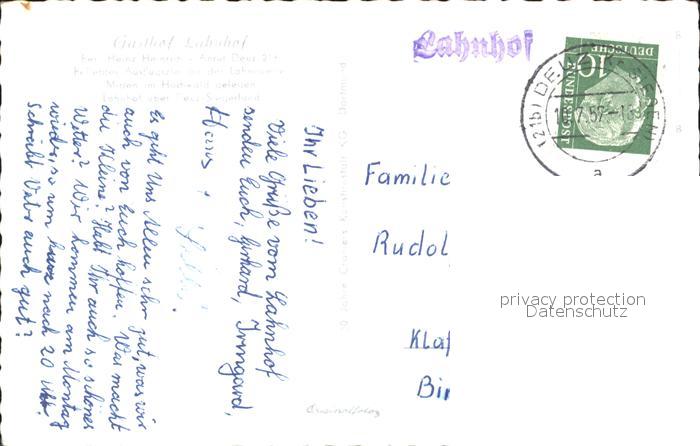 Gasthof Lahnhof
Bes. Heinz Heinrich - Amt Deuz 21
Beliebtes Ausflugsziel an der Lahnquelle
Mitten im Hochwald gelegen
Lahnhof über Deuz Siegerland
Lahnhof
DEUTSCHE
BUNDESPOST
10
(21b) DEUZ (KR SIEGEN)
a
Ihr Lieben!
Viele Grüße vom Lahnhof
senden Euch, Gerhard, Irmgard,
Es geht uns Allen sehr gut, was wir
auch von Euch hoffen. Was macht
die Kleine? Habt Ihr auch so schönes
Wetter? Wir kommen am Montag
wieder, so um nach 20 Uhr.
Schreibt Vati auch gut?
Familie
Rudol
Klaf
Bir
privacy protection
Datenschutz